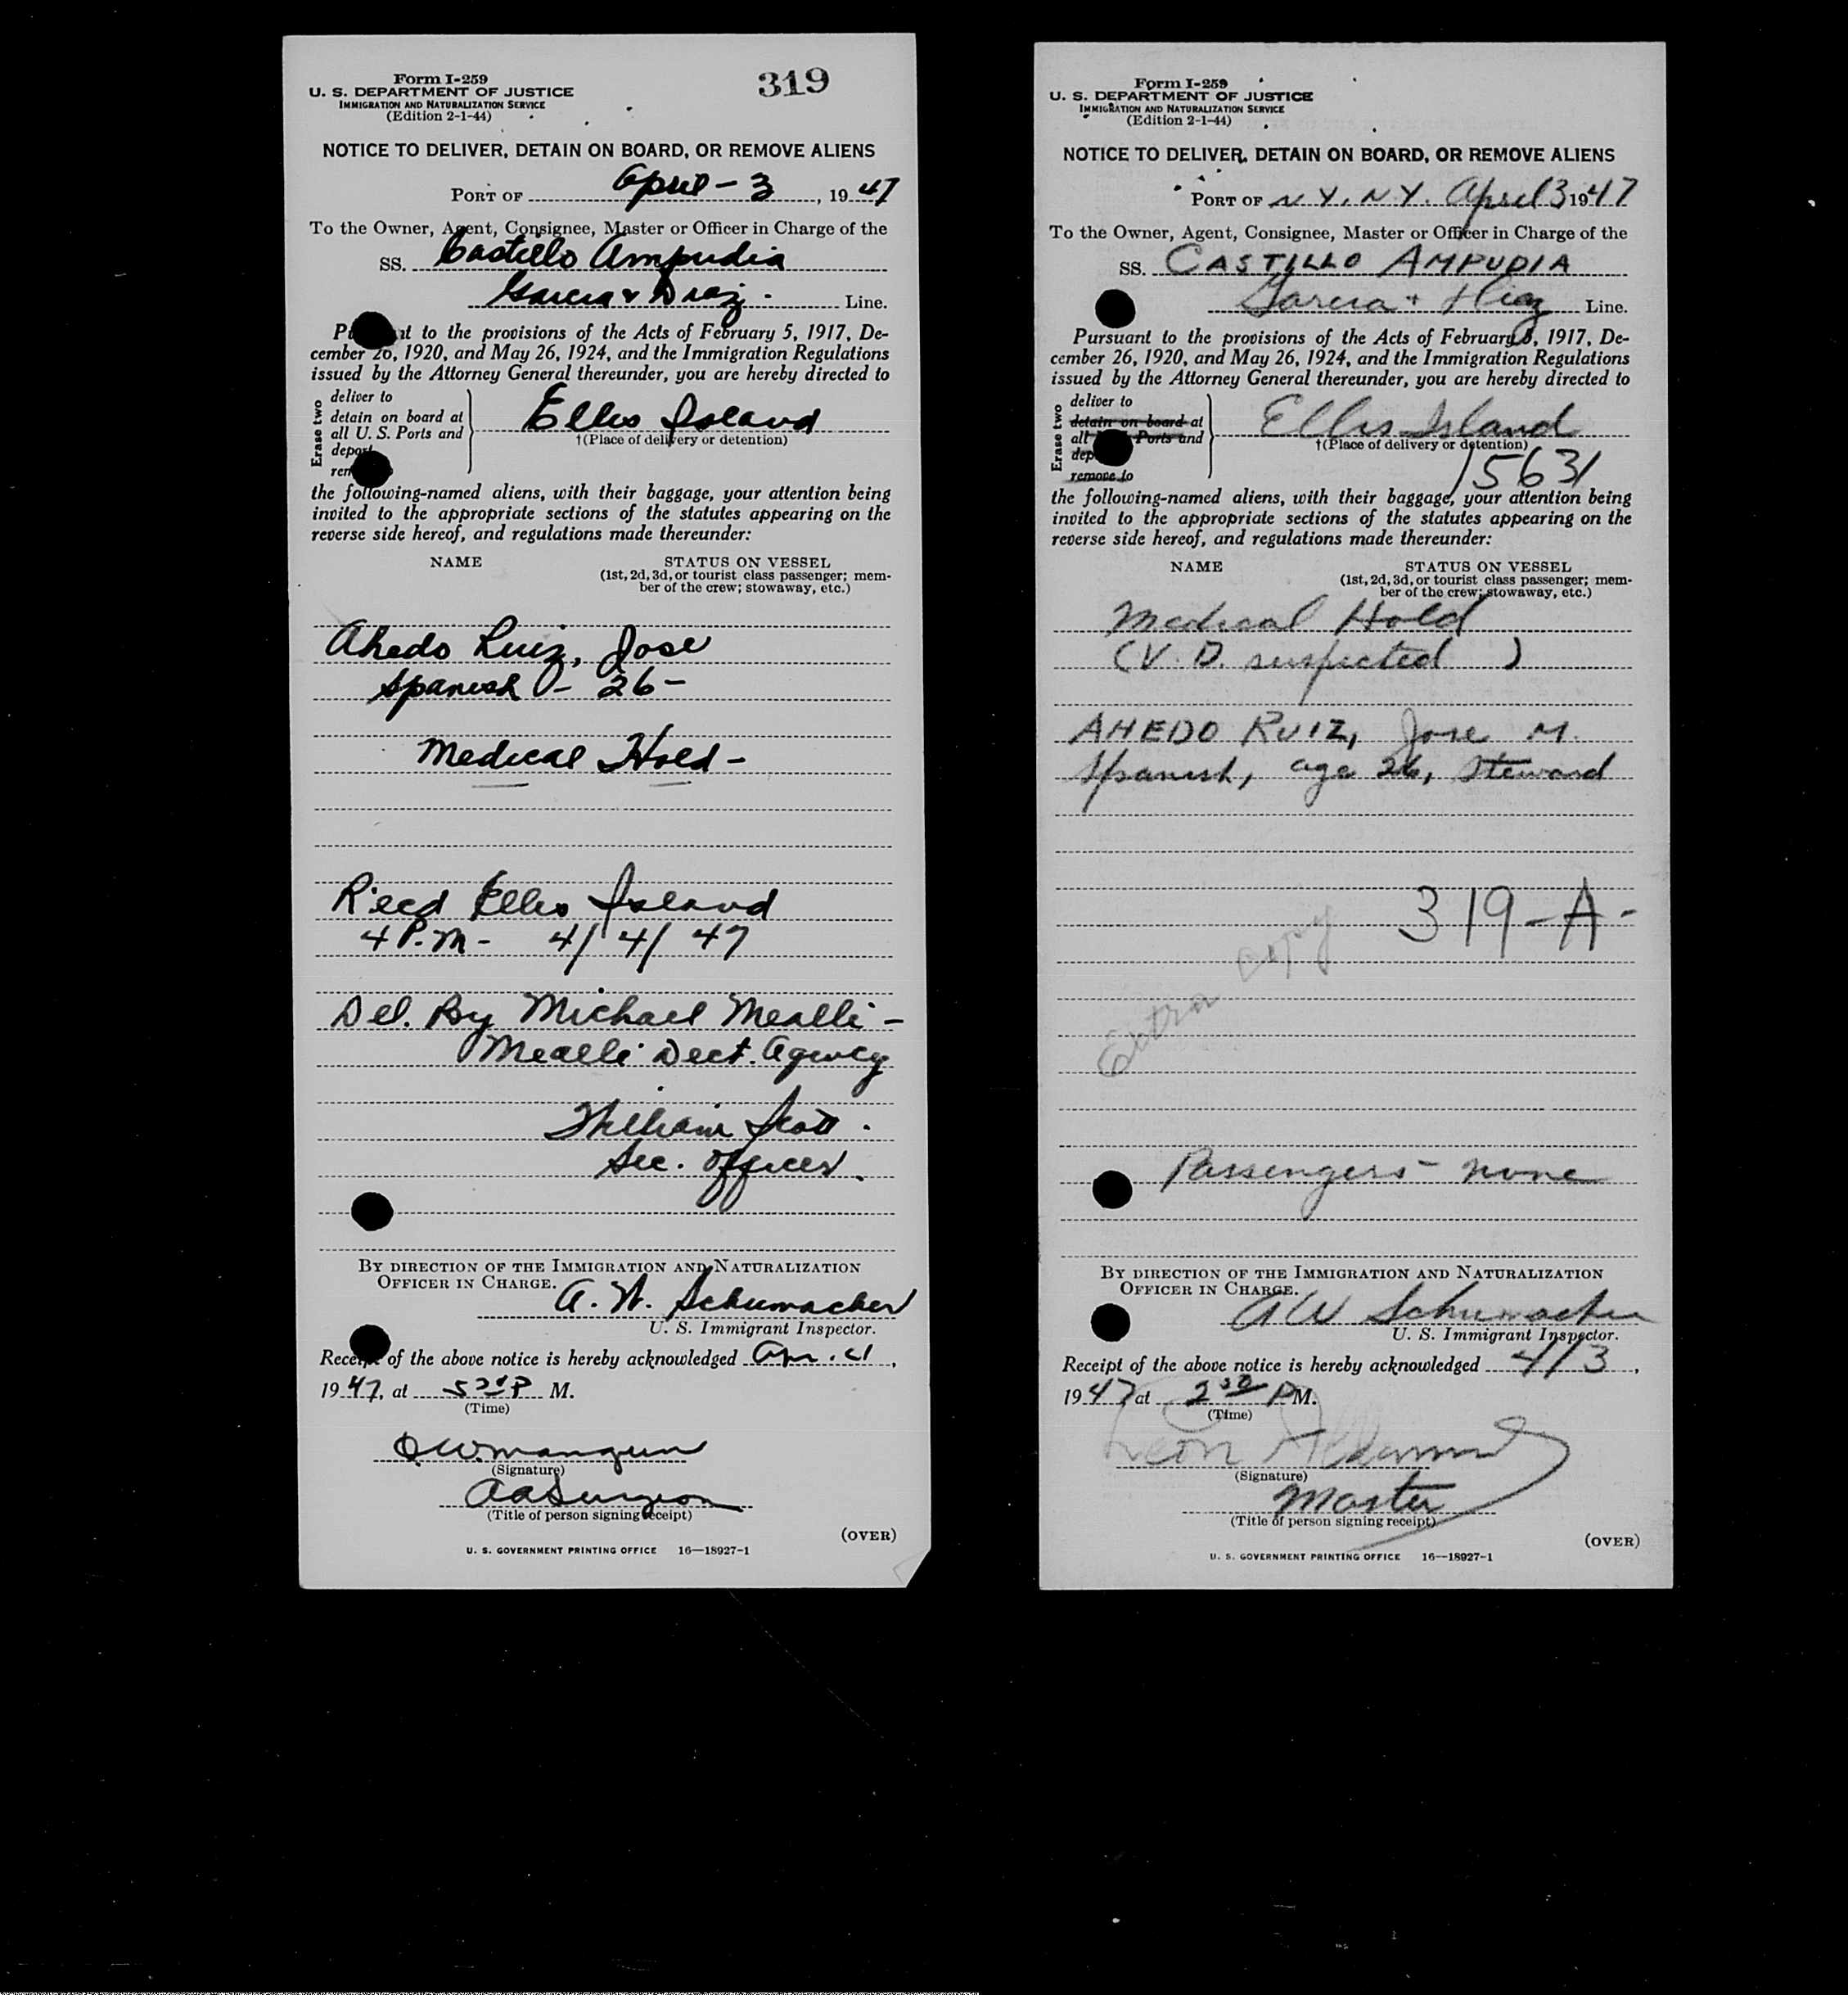 Form I-259
U. S. DEPARTMENT OF JUSTICE
IMMIGRATION AND NATURALIZATION SERVICE
(Edition 2-1-44)
319
NOTICE TO DELIVER, DETAIN ON BOARD, OR REMOVE ALIENS
PORT OF April - 3, 1947
To the Owner, Agent, Consignee, Master or Officer in Charge of the
SS. Castillo Ampudia
Garcia & Diaz. Line.
to the provisions of the Acts of February 5, 1917, De-
cember 26, 1920, and May 26, 1924, and the Immigration Regulations
issued by the Attorney General thereunder, you are hereby directed to
Erase two
deliver to
detain on board at
all U. S. Ports and
deport
Ellis Island
†(Place of delivery or detention)
the following-named aliens, with their baggage, your attention being
invited to the appropriate sections of the statutes appearing on the
reverse side hereof, and regulations made thereunder:
NAME
STATUS ON VESSEL
(1st, 2d, 3d, or tourist class passenger; mem-
ber of the crew; stowaway, etc.)
Ahedo Ruiz, Jose
Spanish - 26 -
Medical Hold -
R'ecd Ellis Island
4 P.M - 4/4/47
Del. By Michael Mealli -
Mealli Dect. Agency
William Scott.
Sec. Officer.
BY DIRECTION OF THE IMMIGRATION AND NATURALIZATION
OFFICER IN CHARGE.
A. W. Schumacher
U. S. Immigrant Inspector.
Receipt of the above notice is hereby acknowledged Apr. 4,
1947, at M.
(Time)
(Signature)
AA Surgeon
(Title of person signing receipt)
(OVER)
U. S. GOVERNMENT PRINTING OFFICE 16—18927-1
Form I-259
U. S. DEPARTMENT OF JUSTICE
IMMIGRATION AND NATURALIZATION SERVICE
(Edition 2-1-44)
NOTICE TO DELIVER, DETAIN ON BOARD, OR REMOVE ALIENS
PORT OF N Y, N Y. April 3 1947
To the Owner, Agent, Consignee, Master or Officer in Charge of the
SS. CASTILLO AMPUDIA
Garcia + Diaz Line.
Pursuant to the provisions of the Acts of February 5, 1917, De-
cember 26, 1920, and May 26, 1924, and the Immigration Regulations
issued by the Attorney General thereunder, you are hereby directed to
Erase two
deliver to
detain on board at
all Ports and
remove to
Ellis Island
†(Place of delivery or detention)
15631
the following-named aliens, with their baggage, your attention being
invited to the appropriate sections of the statutes appearing on the
reverse side hereof, and regulations made thereunder:
NAME
STATUS ON VESSEL
(1st, 2d, 3d, or tourist class passenger; mem-
ber of the crew; stowaway, etc.)
Medical Hold
(V. D. suspected )
AHEDO RUIZ, Jose M.
Spanish, age 26, Steward
319-A-
Extra copy
Passengers - none
BY DIRECTION OF THE IMMIGRATION AND NATURALIZATION
OFFICER IN CHARGE.
A W Schumacher
U. S. Immigrant Inspector.
Receipt of the above notice is hereby acknowledged 4/3,
1947 at 2 30 P M.
(Time)
Leon
(Signature)
Master
(Title of person signing receipt)
(OVER)
U. S. GOVERNMENT PRINTING OFFICE 16—18927-1